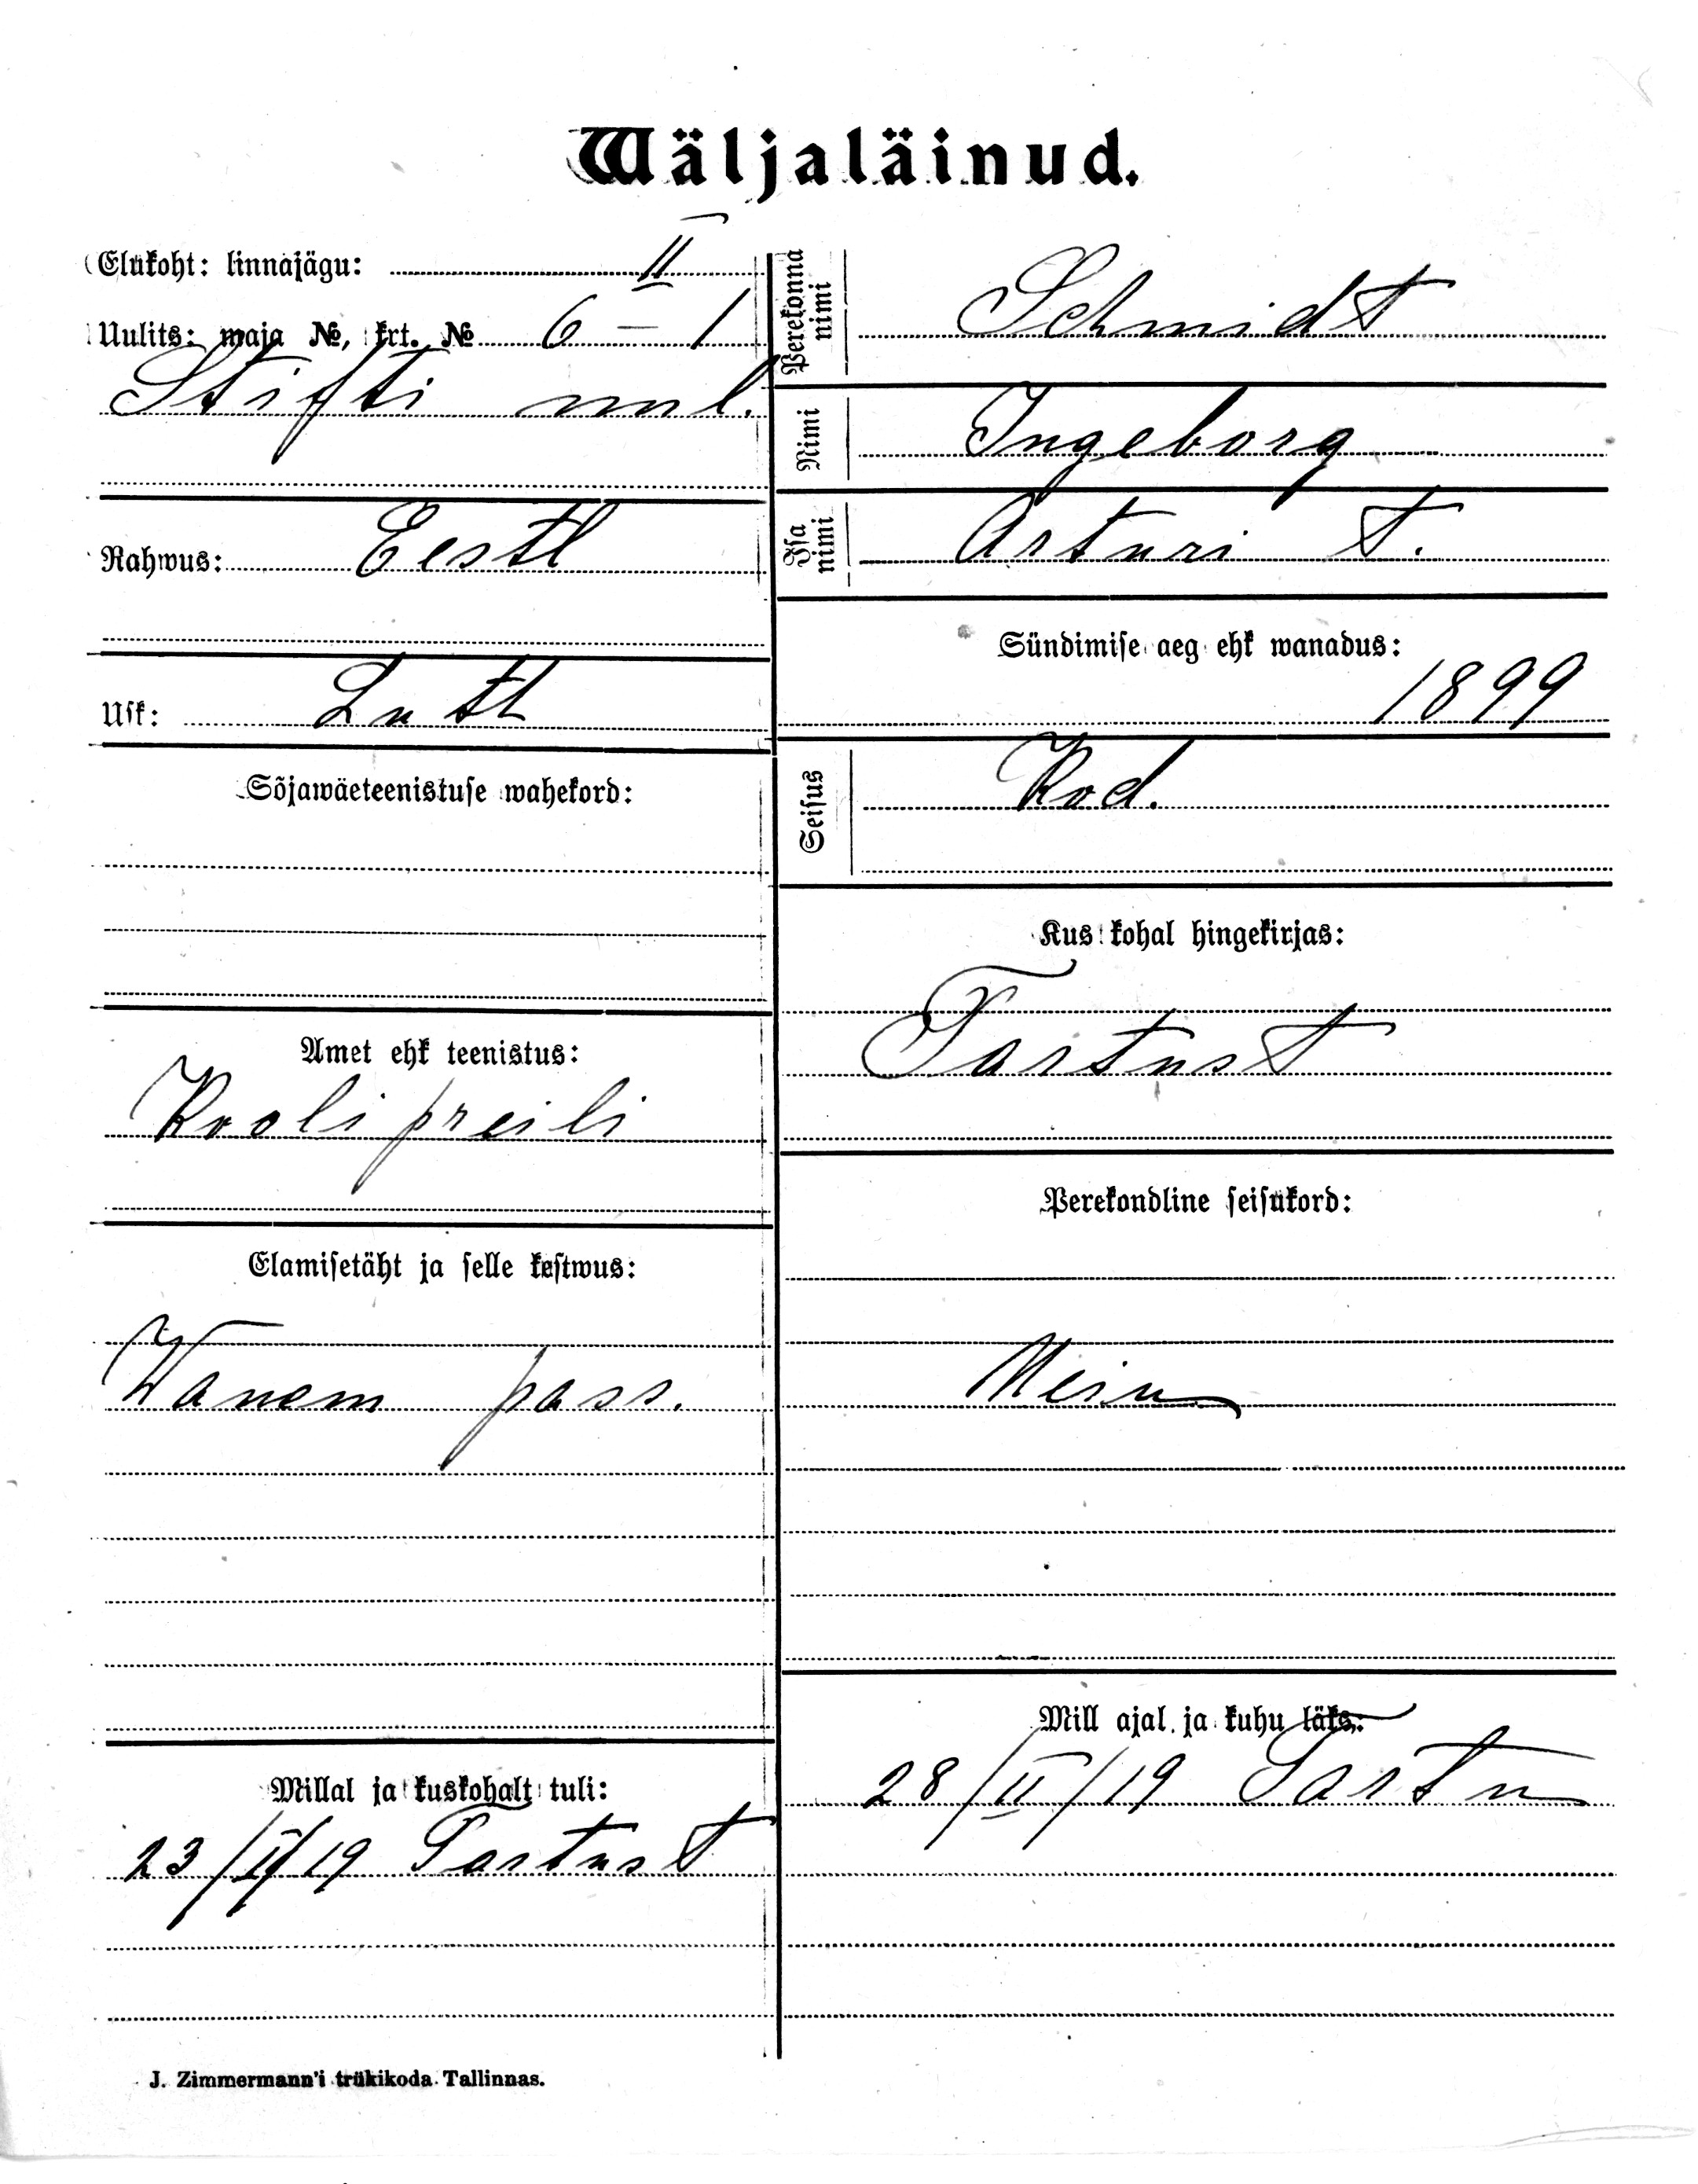 Wäljaläinud.
Elukoht: linnajägu: II
Uulits: maja №, krt. № 6 – 1
Stifti uul.
Rahwus: Eestl
Usk: Lutl
Sõjawäeteenistuse wahekord:
Amet ehk teenistus:
Kooli preili
Elamisetäht ja selle kestwus:
Wanem pass.
Millal ja kuskohalt tuli:
23/II/19 Tartust
Perekonna nimi Schmidt
Nimi Ingeborg
Isa nimi Arturi t.
Sündimise aeg ehk wanadus:
1899
Seisus Kod.
Kus kohal hingekirjas:
Tartust
Perekondline seisukord:
Mill ajal ja kuhu läks:
28/II/19 Tartu
J. Zimmermann'i trükikoda Tallinnas.